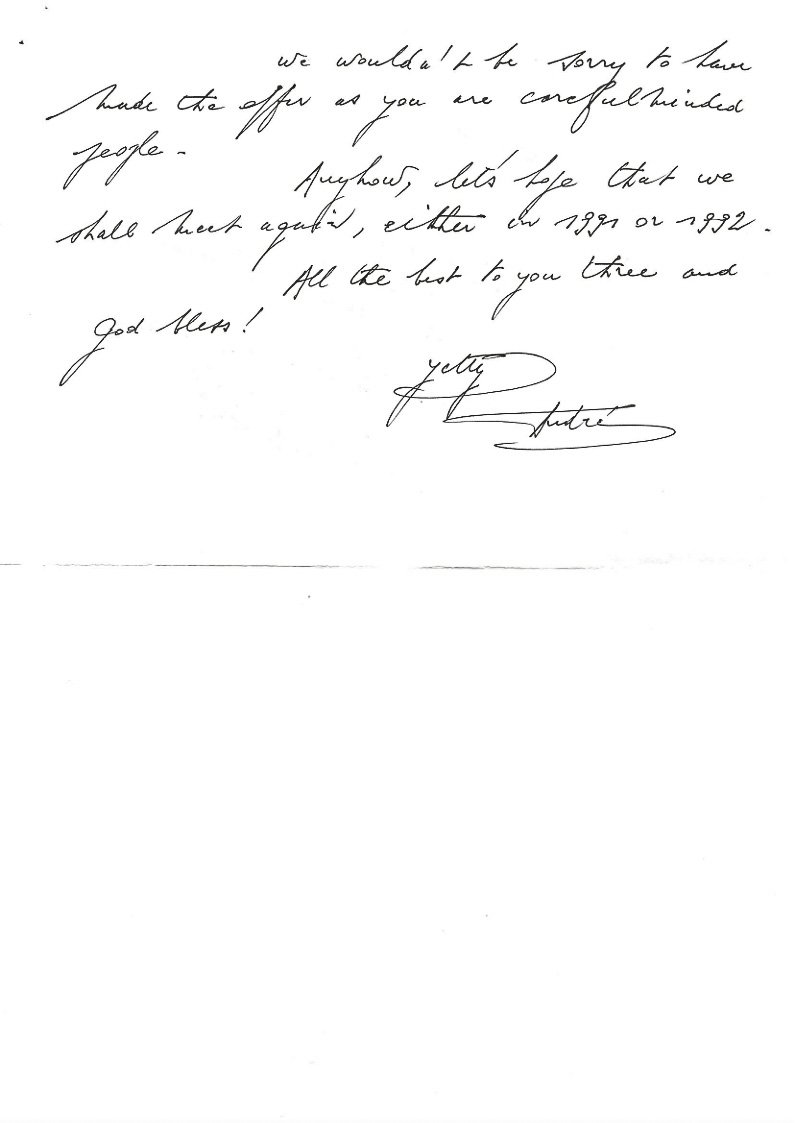 we wouldn't be sorry to have
made the offer as you are carefulminded
people -
Anyhow, let's hope that we
shall meet again, either in 1991 or 1992.
All the best to you three and
God bless!
Yetty
André